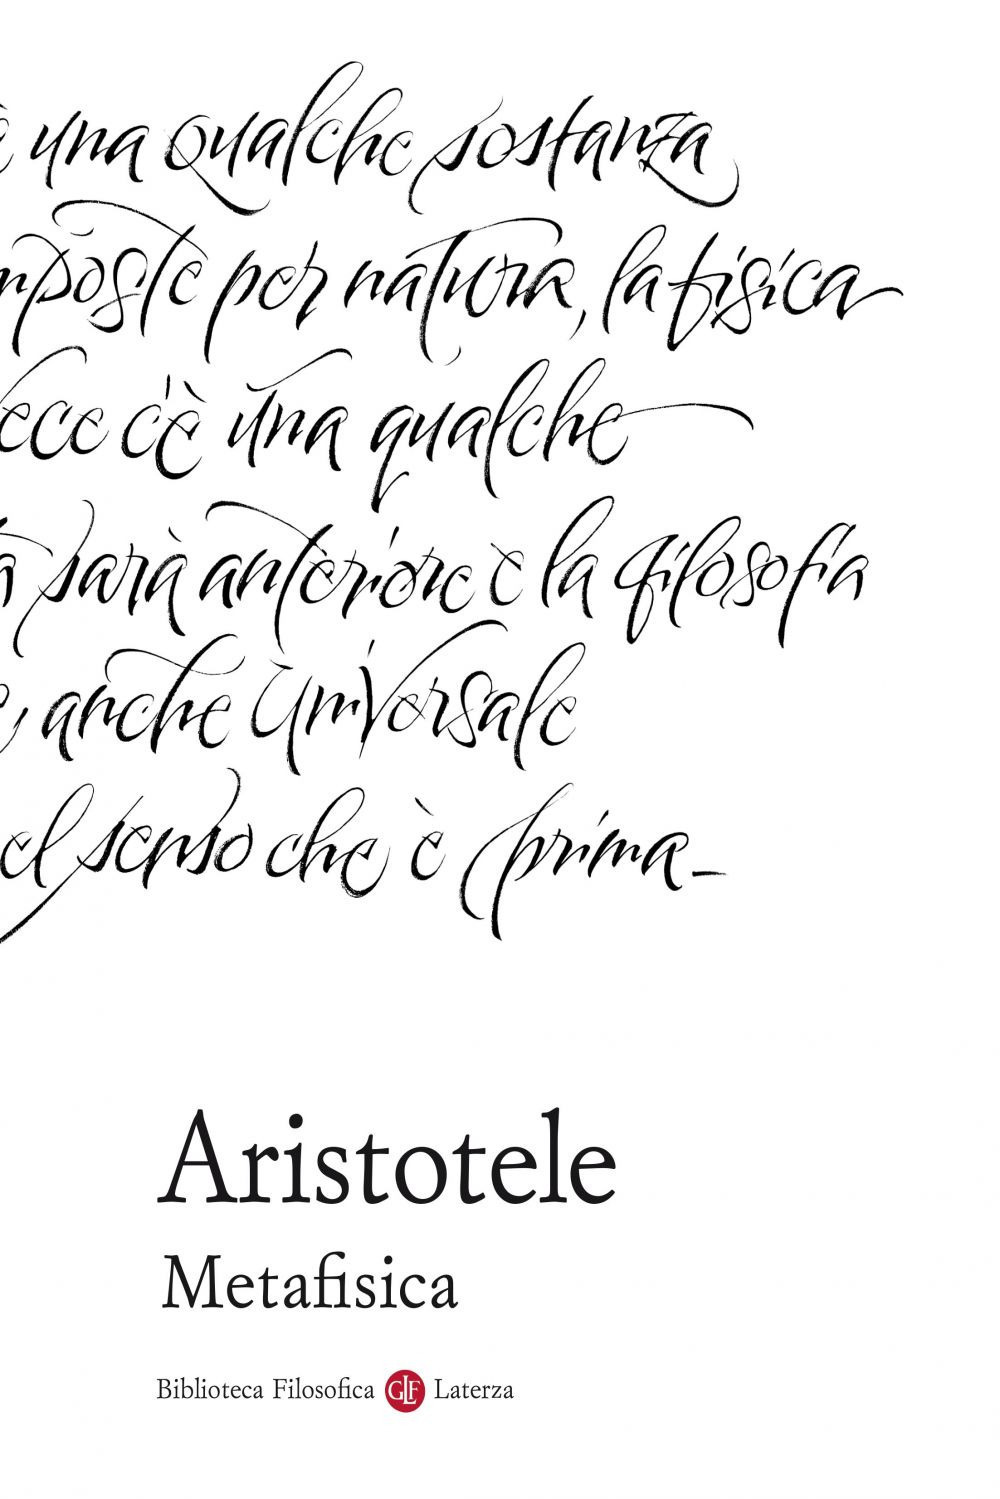 è una qualche sostanza
mposte per natura, la fisica
vece c'è una qualche
sarà anteriore è la filosofia
e, anche universale
el senso che è prima_
Aristotele
Metafisica
Biblioteca Filosofica GLF Laterza